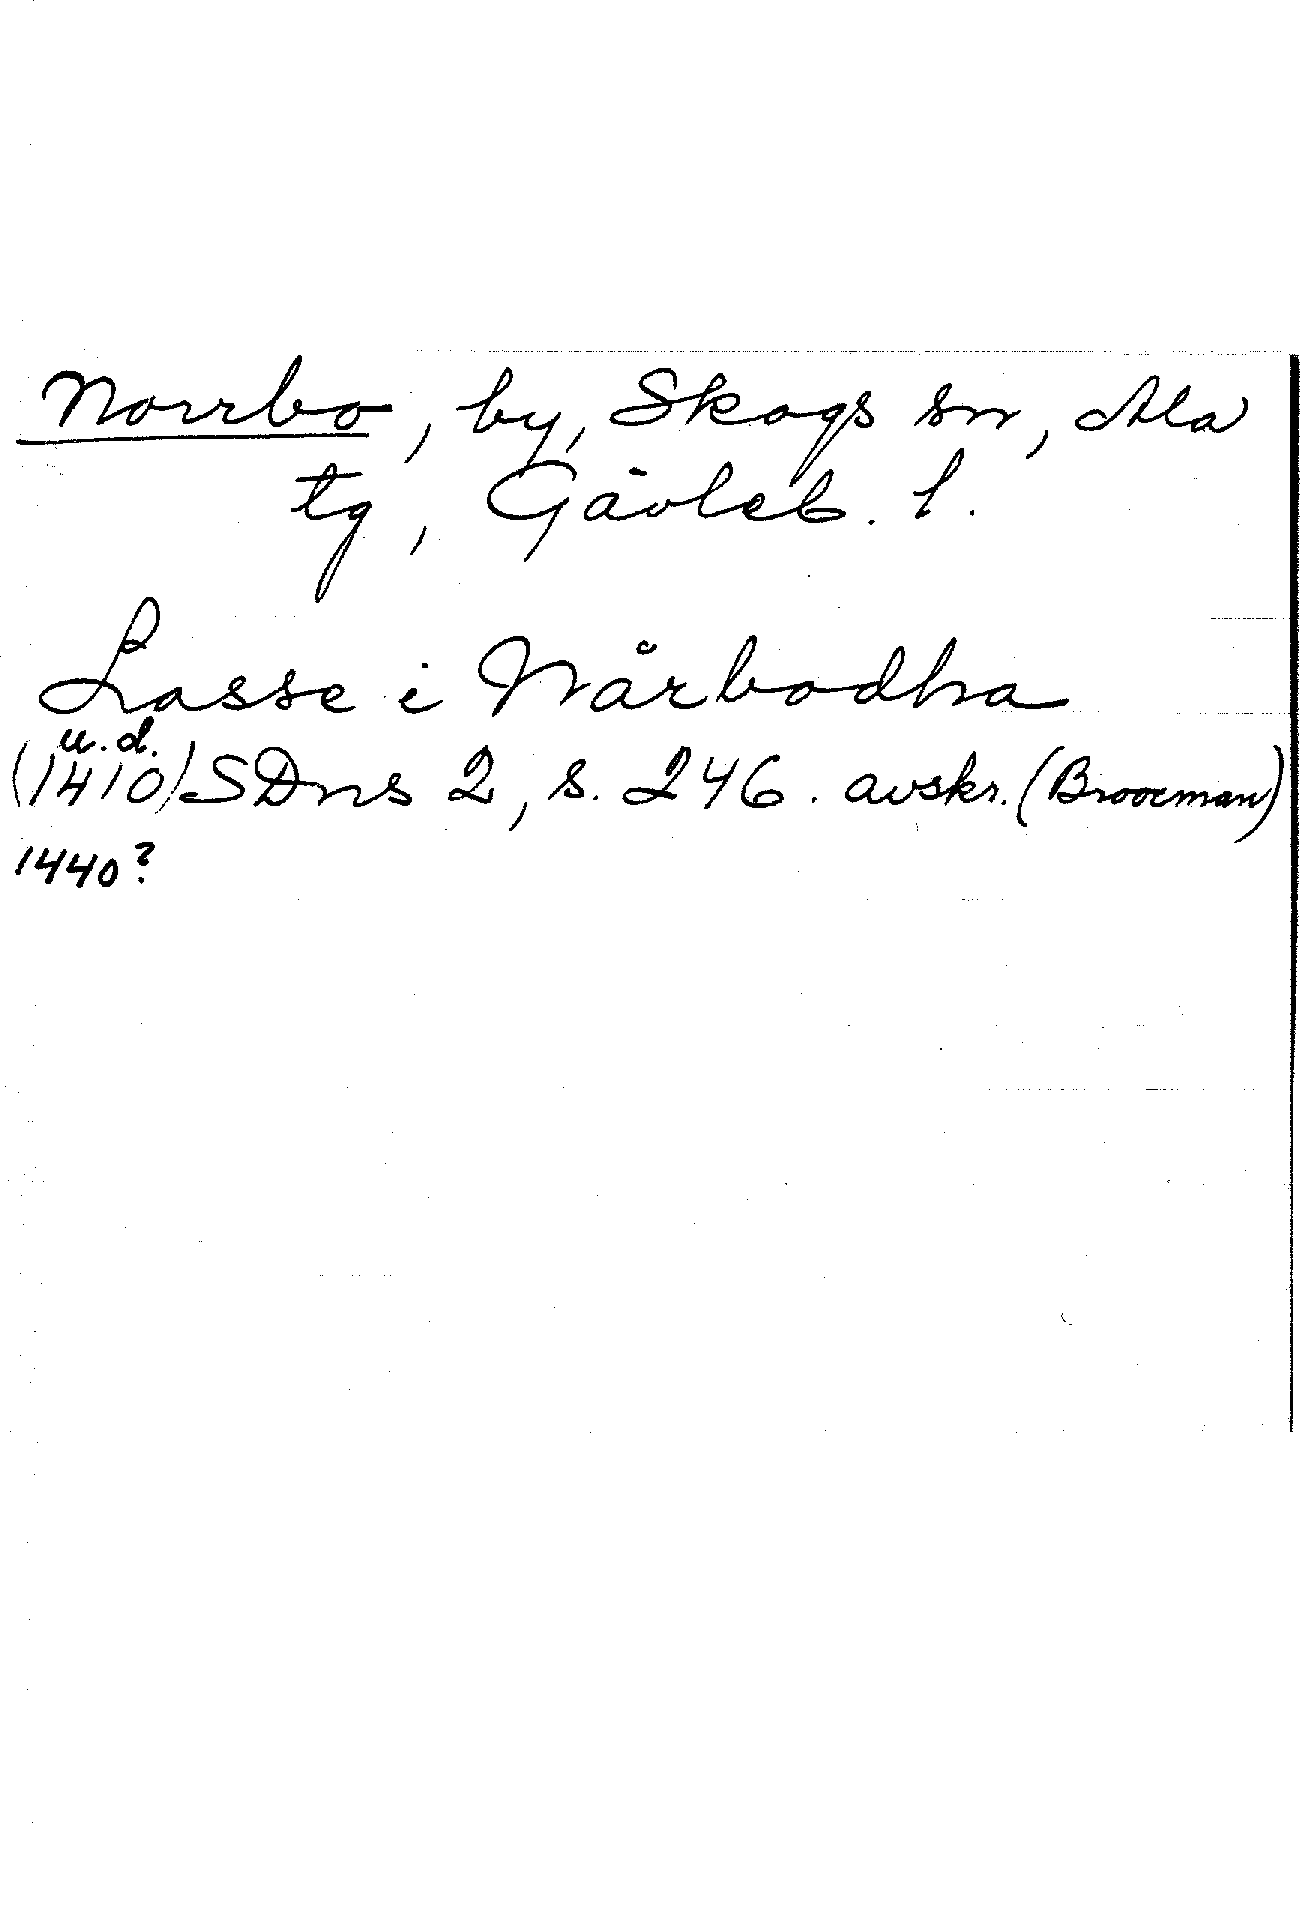 Norrbo, by, Skogs sn, Ala
tg, Gävleb. l.
Lasse i Nårbodha
u.d.
(1410) SDns 2, s. 246. avskr. (Broocman)
1440?